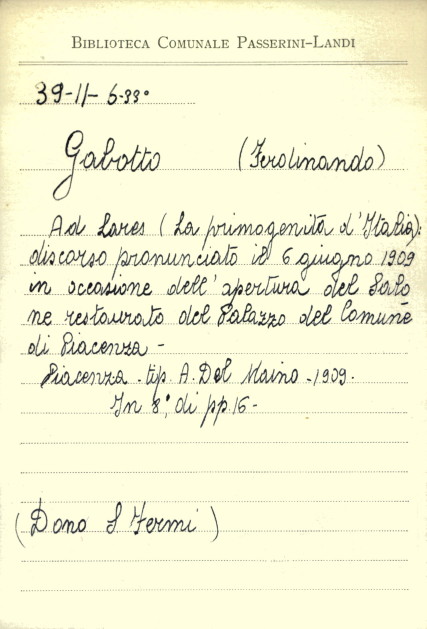 BIBLIOTECA COMUNALE PASSERINI-LANDI
39-11- 6-33°
Gabotto (Ferdinando)
Ad Lares (La primogenita d'Italia):
discorso pronunciato il 6 giugno 1909
in occasione dell'apertura del Salo
ne restaurato del Palazzo del Comune
di Piacenza -
Piacenza - tip. A. Del Maino - 1909.
In 8°, di pp. 16 -
(Dono S. Fermi)